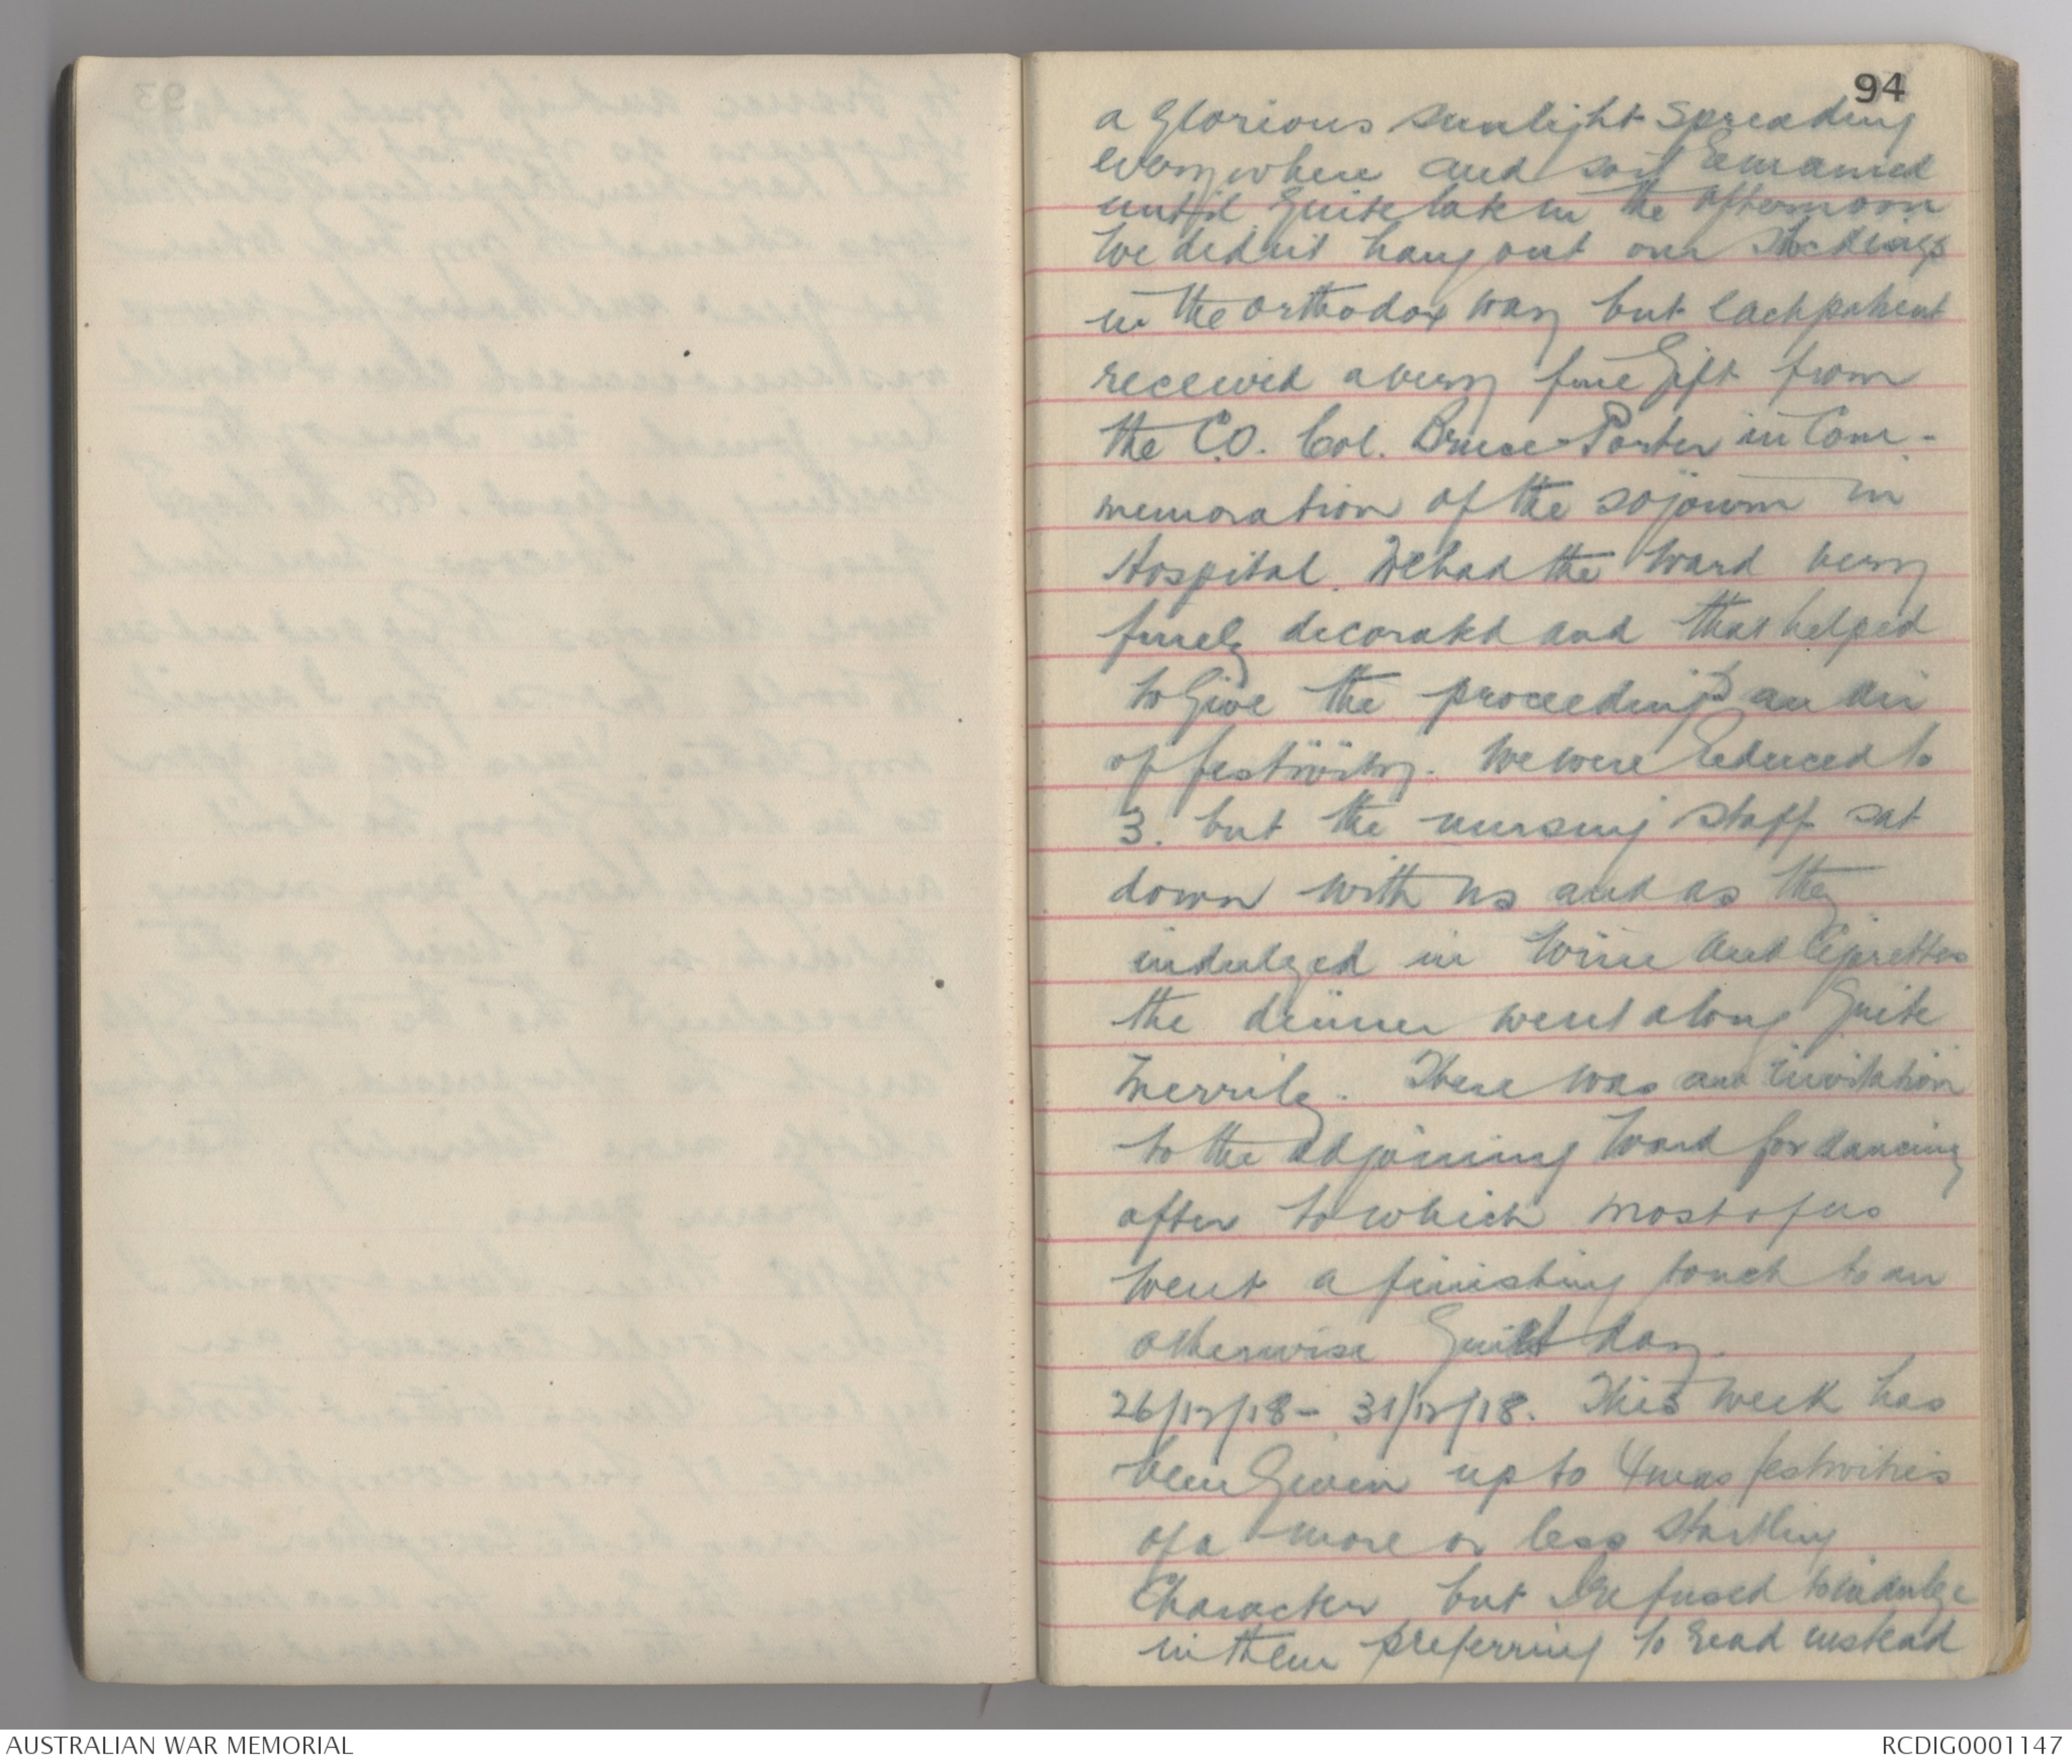 94
a glorious sunlight spreading
everywhere and so it remained
until quite late in the afternoon
We didnt hang out our stockings
in the orthodox way but each patient
received a very fine gift from
the C.O. Col. Bruce-Porter in Com-
memoration of the sojourn in
Hospital. We had the ward very
finely decorated and that helped
to give the proceedings an air
of festivity. We were reduced to
3. but the nursing staff sat
down with us and as they
indulged in wine and Cigarettes
the dinner went along quite
merrily. There was an invitation
to the adjoining ward for dancing
after to which most of us
went a finishing touch to an
otherwise quiet day.
26/12/18 - 31/12/18. This week has
been given up to Xmas festivities
of a more or less startling
Character but I refused to indulge
in them preferring to read instead
AUSTRALIAN WAR MEMORIAL
RCDIG0001147